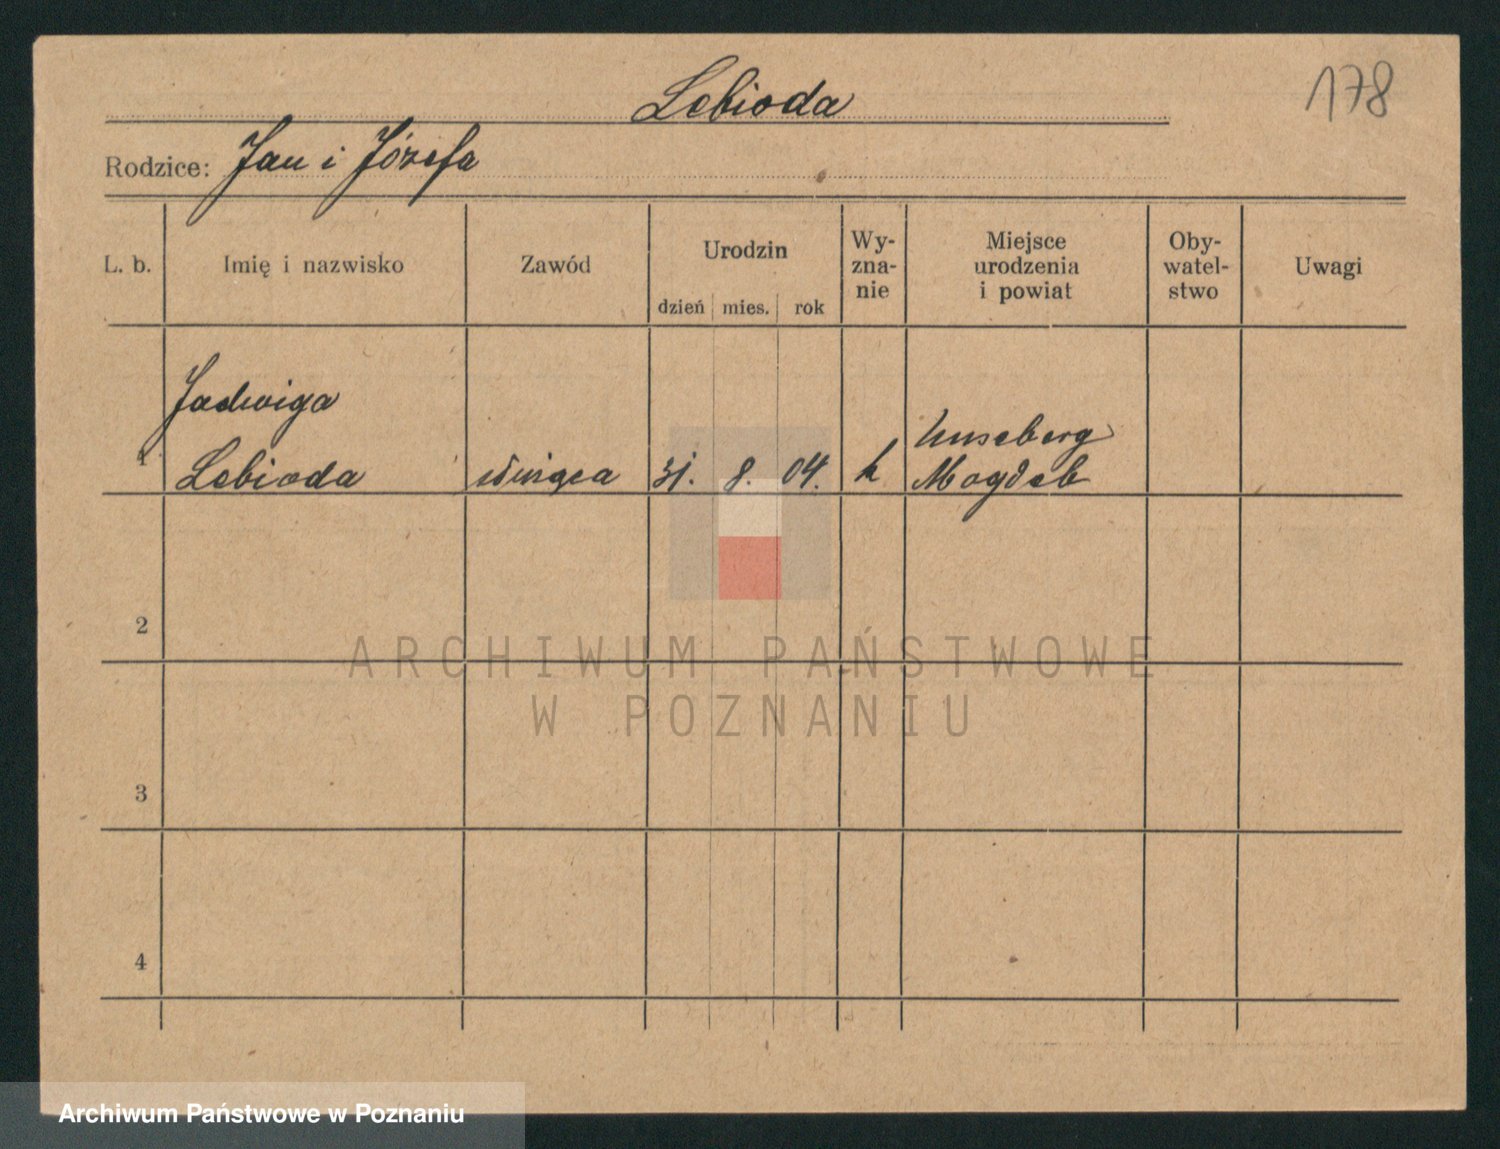 178
Lebioda
Rodzice: Jan i Józefa
L. b.
Imię i nazwisko
Zawód
Urodzin
dzień mies. rok
Wy-
zna-
nie
Miejsce
urodzenia
i powiat
Oby-
watel-
stwo
Uwagi
1
Jadwiga
Lebioda
31. 8. 04.
k
Unseberg
Magdeb
2
3
4
ARCHIWUM PAŃSTWOWE
W POZNANIU
Archiwum Państwowe w Poznaniu